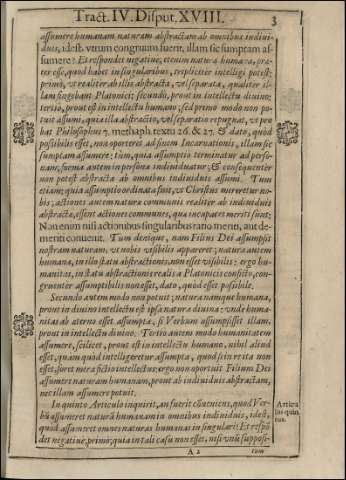 Tract. IV. Disput. XVIII.
3
assumere humanam naturam abstractam ab omnibus indivi-
duis, idest. vtrum congruum fuerit, illam sic sumptam as-
sumere? Et respondet negative, etenim natura humana, præ-
ter esse, quod habet in singularibus, tripliciter intelligi potest:
primò, vt realiter ab illis abstracta, vel separata, qualiter il-
lam fingebant Platonici: secundo, prout in intellectu divino:
tertiò, prout est in intellectu humano; sed primo modo non po-
tuit assumi, quia illa abstractio, vel separatio repugnat, vt pro
bat Philosophus 7. methaph. textu 26. & 27. & dato, quod
possibilis esset, non oporteret ad finem Incarnationis, illam sic
sumptam assumere: tùm, quia assumptio terminatur ad perso-
nam, forma autem in persona individuatur; & consequenter
non potest abstracta ab omnibus individuis assumi. Tum
etiam; quia assumptio ordinata fuit, vt Christus mereretur no-
bis; actiones autem naturæ communis realiter ab individuis
abstractæ, essent actiones communes, quæ incapaces meriti sunt:
Nam enim nisi actionibus singularibus ratio meriti, aut de-
meriti convenit. Tum denique, nam Filius Dei assumpsit
nostram naturam, vt nobis visibilis appareret; natura autem
humana, in illo statu abstractionis, non esset visibilis: ergo hu-
manitas, in statu abstractionis realis a Platonicis conficto, con-
gruenter assumptibilis non esset, dato, quod esset possibile.
Secundo autem modo non potuit; natura namque humana,
prout in divino intellectu est ipsa natura divina: vnde huma-
nitas ab æterno esset assumpta, si Verbum assumpsisset illam,
prout in intellectu divino. Tertio autem modo humanitatem
assumere, scilicet, prout est in intellectu humano, nihil aliud
esset, quàm quod intelligeretur assumpta, quod si in re ita non
esset, foret mera fictio intellectus; ergo non oportuit Filium Dei
assumere naturam humanam, prout ab individuis abstractam,
nec illam assumere potuit.
In quinto Articulo inquirit, an fuerit cōveniens, quod Ver-
bū assumeret naturā humanam in omnibus individuis, idest,
quod assumeret omnes naturas humanas in singulari: Et respō
det negative, primò; quia in tali casu non esset, nisi vnū supposi-
Articu
lus quin
tus.
A 2
tum